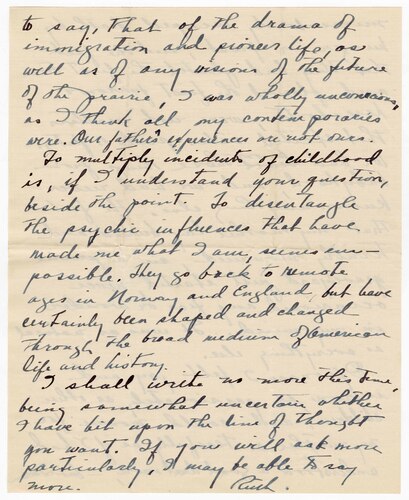 to say, that of the drama of
immigration and pioneer life, as
well as of any visions of the future
of the prairie, I was wholly unconscious,
as I think all my contemporaries
were. Our father's experiences are not ours.
To multiply incidents of childhood
is, if I understand your question,
beside the point. To disentangle
the psychic influences that have
made me what I am, seems im-
possible. They go back to remote
ages in Norway and England, but have
certainly been shaped and changed
through the broad medium of American
life and history.
I shall write no more this time,
being somewhat uncertain whether
I have hit upon the line of thought
you want. If you will ask more
particularly, I may be able to say
more. Ruth.